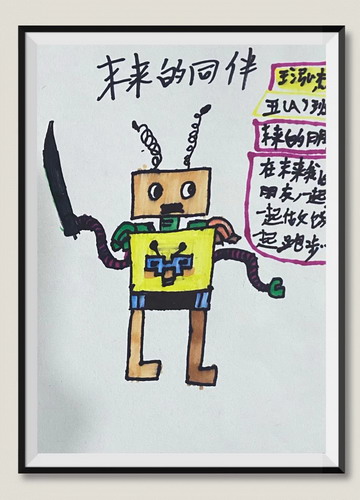 未来的同伴
五(A)班
未来的朋
在未来我
朋友一起
一起做
一起跑步…